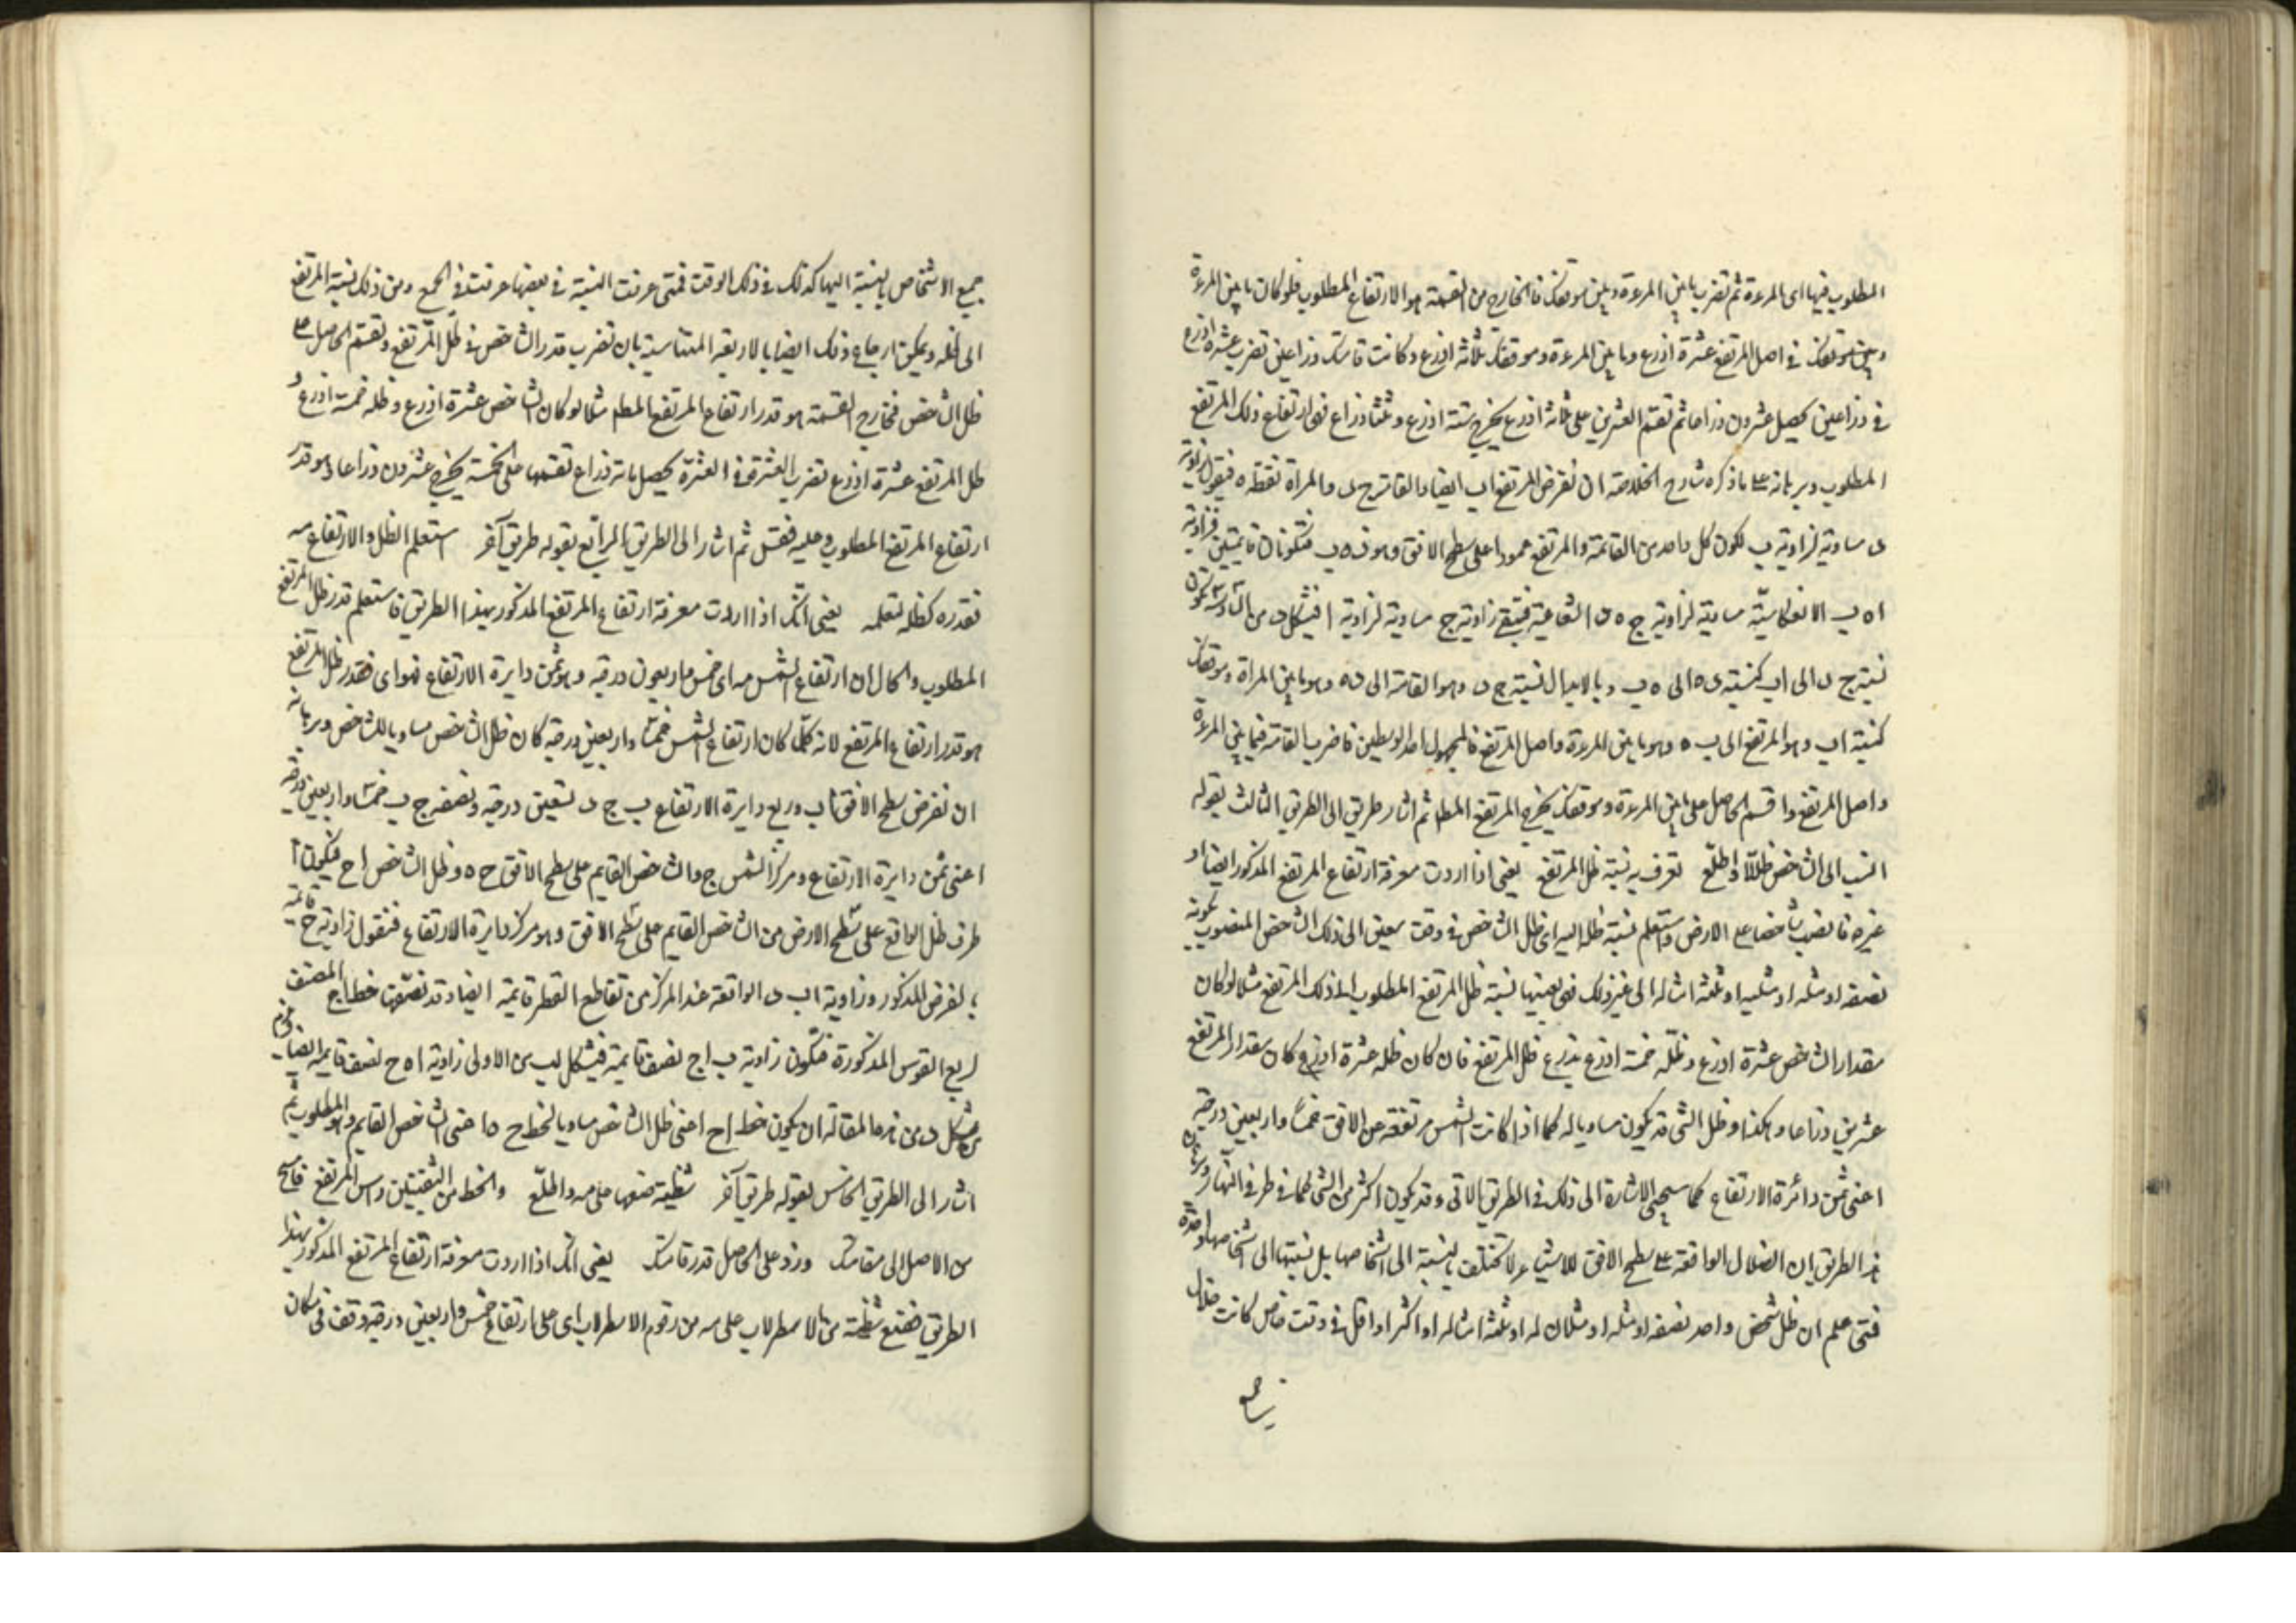 المطلوب فيها اى المرءة ثم تضرب ما بين المرءة وبين موقفك فالخارج من القسمة هو الارتفاع المطلوب فلو كان ما بين المرءة
وبين موقفك فى اصل المرتفع عشرة اذرع وما بين المرءة وموقفك ثلاثة اذرع وكانت قامتك ذراعين تضرب عشرة اذرع
فى ذراعين يحصل عشرون ذراعا ثم تقسم العشرين على ثلاثة اذرع يخرج ستة اذرع وثلثا ذراع فهى ارتفاع ذلك المرتفع
المطلوب وبرهانه على ما ذكره شارح الخلاصة ان نفرض المرتفع اب ايضا والقامة ج د والمراة نقطة ه فيقول زاوية
د مساوية لزاوية ب لكون كل واحد من القامة والمرتفع عمودا على سطح الافق وهو د ه ب فتكونان قائمتين فزاوية
ا ه ب الانعكاسية مساوية لزاوية ج ه د الشعاعية فتبقى زاوية ج مساوية لزاوية ا فبشكل د من السادسة تكون
نسبة ج د الى اب كنسبة د ه الى ه ب وبالابدال نسبة ج د وهو القامة الى د ه وهو ما بين المراة وموقفك
كنسبة اب وهو المرتفع الى ب ه وهو ما بين المرءة واصل المرتفع فالمجهول احد الوسطين فاضرب القامة فيما بين المرءة
واصل المرتفع واقسم الحاصل على ما بين المرءة وموقفك يخرج المرتفع المط ثم اشار طريق الى الطريق الثالث بقوله
انسب الى الشاخص ظلا واطلع تعرف به نسبة ظل المرتفع يعنى اذا اردت معرفة ارتفاع المرتفع المذكور ايضا او
غيره فانصب شاخصا على الارض واستعلم نسبة ظله اليه اى ظل الشاخص فى وقت معين الى ذلك الشاخص المنصوب بكونه
نصفه او مثله او مثليه او ثلثة امثاله الى غير ذلك فهى بعينها نسبة ظل المرتفع المطلوب الى ذلك المرتفع مثلا لو كان
مقدار الشاخص عشرة اذرع وظله خمسة اذرع يذرع ظل المرتفع فان كان ظله عشرة اذرع كان مقدار المرتفع
عشرين ذراعا وهكذا وظل الشى قد يكون مساويا له كما اذا كانت الشمس مرتفعة عن الافق خمسا واربعين درجة
اعنى ثمن دائرة الارتفاع كما سيجئ الاشارة الى ذلك فى الطريق الاتى وقد يكون اكثر من الشى كما فى طرفى النهار وبرهان
هذا الطريق ان الضلال الواقعة على سطح الافق للاشياء لا تختلف بالنسبة الى اشخاصها بل نسبتها الى اشخاصها واحدة
فمتى علم ان ظل شخص واحد نصفه او مثله او مثلان له او ثلثة امثاله او اكثر او اقل فى وقت خاص كانت ضلال
جميع الاشخاص بالنسبة اليها كذلك فى ذلك الوقت فمتى عرفت النسبة فى بعضها عرفت فى الجميع ومن ذلك نسبة المرتفع
الى ظله ويمكن ارجاع ذلك ايضا بالاربعة المتناسبة بان تضرب قدر الشاخص فى ظل المرتفع وتقسم الحاصل على
ظل الشاخص فخارج القسمة هو قدر ارتفاع المرتفع المط مثلا لو كان الشاخص عشرة اذرع وظله خمسة اذرع و
ظل المرتفع عشرة اذرع تضرب العشرة فى العشرة يحصل مائة ذراع تقسمها على الخمسة يخرج عشرون ذراعا وهو قدر
ارتفاع المرتفع المطلوب وعليه فقس ثم اشار الى الطريق الرابع بقوله طريق آخر استعلم الظل والارتفاع مه
فقدره كظله تعلمه يعنى انك اذا اردت معرفة ارتفاع المرتفع المذكور بهذا الطريق فاستعلم قدر ظل المرتفع
المطلوب والحال ان ارتفاع الشمس مه اى خمس واربعون درجة وهو ثمن دايرة الارتفاع فهو اى فقدر ظل المرتفع
هو قدر ارتفاع المرتفع لانه كلما كان ارتفاع الشمس خمسا واربعين درجة كان ظل الشاخص مساويا للشاخص وبرهانه
ان نفرض سطح الافق اب وربع دايرة الارتفاع ب ج د تسعين درجة ونصفه ج ب خمسا واربعين درجة
اعنى ثمن دايرة الارتفاع ومركز الشمس ج والشاخص القايم على سطح الافق ح ه وظل الشاخص ا ح فيكون ا
طرف ظل الواقع على سطح الارض من الشاخص القايم على سطح الافق وهو مركز دايرة الارتفاع فنقول زاوية ح قائمة
بالفرض المذكور وزاوية ا ب د الواقعة عند المركز من تقاطع القطر قايمة ايضا وقد نصفت خط ا ج المنصف
لربع القوس المذكورة فتكون زاوية ب ا ج نصف قايمة فبشكل لب من الاولى زاوية ا ه ح نصف قايمة ايضا فيلزم
من شكل و من هذه المقالة ان يكون خط ا ح اعنى ظل الشاخص مساويا لخط ح ه اعنى الشاخص القايم وهو المطلوب ثم
اشار الى الطريق الخامس بقوله طريق آخر شظية ضعها على مه واطلع والخط من الثقبتين راس المرتفع فامسح
من الاصل الى مقامك وزد على الحاصل قدر قامتك يعنى انك اذا اردت معرفة ارتفاع المرتفع المذكور بهذا
الطريق فضع شظية من الاسطرلاب على مه من رقوم الاسطرلاب اى على ارتفاع خمس واربعين درجة وقف فى مكان